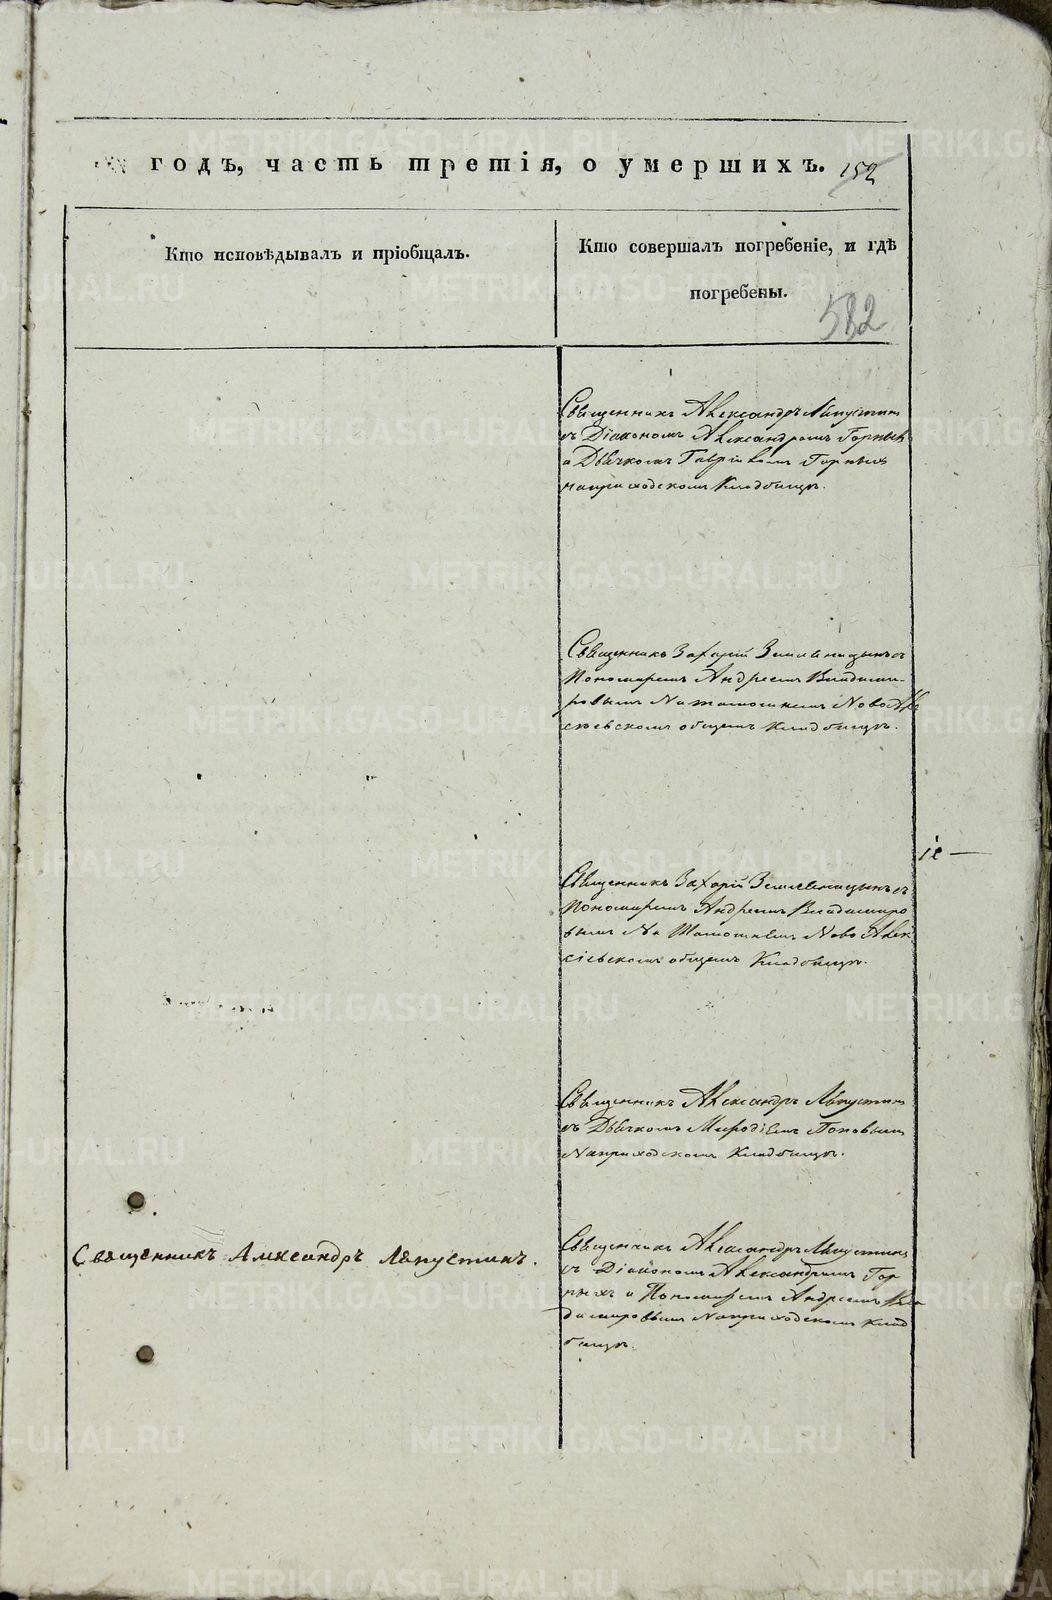 годъ, часть третія, о умершихъ. 152
Кто исповѣдывалъ и пріобщалъ.
Кто совершалъ погребеніе, и гдѣ
погребены.
582
Священникъ Александръ Лапустинъ
съ Діакономъ Александромъ Горныхъ
и Дьячкомъ Гавріиломъ Горныхъ
на приходскомъ Кладбищѣ.
Священникъ Захарій Земляницынъ съ
Пономаремъ Андреемъ Владими-
ровымъ На тамошнемъ Ново Але
ксѣевскомъ общемъ Кладбищѣ.
Священникъ Захарій Земляницынъ съ
Пономаремъ Андреемъ Владимиро
вымъ На Тамошнемъ Ново Алек
сіевскомъ общемъ Кладбищѣ.
Священникъ Александръ Лапустинъ
съ Дьячкомъ Поповымъ
На приходскомъ Кладбищѣ.
Священникъ Александръ Лапустинъ.
Священникъ Александръ Лапустинъ
съ Діакономъ Александромъ Гор
ныхъ и Пономаремъ Андреемъ Вла
димировымъ На приходскомъ Клад
бищѣ.
METRIKI.GASO-URAL.RU